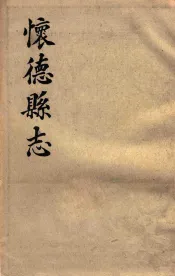 懷德縣志